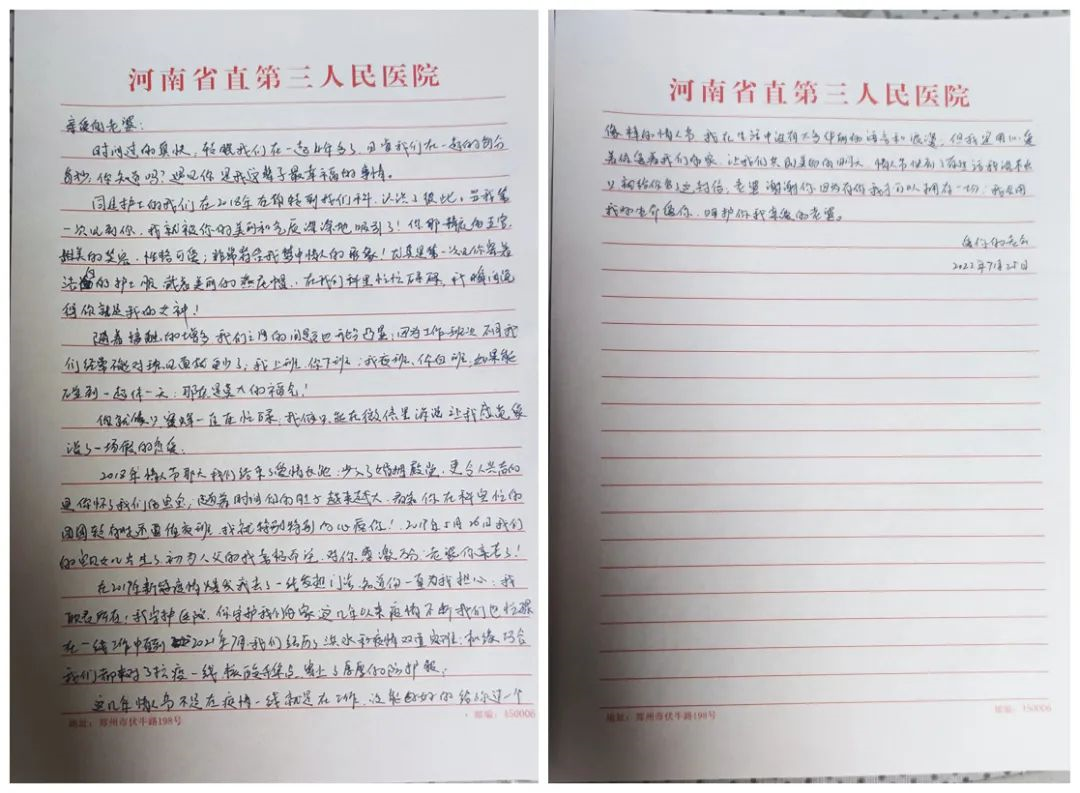 河南省直第三人民医院
亲爱的老婆：
时间过的真快，转眼我们在一起4年多了，回首我们在一起的每分
每秒，你知道吗？遇见你是我这辈子最幸福的事情。
同是护士的我们在2018年在你转到我们科，认识了彼此，当我第
一次见到你，我就被你的美丽和气质深深地吸引了！你那精致的五官，
甜美的笑容，性格可爱；非常符合我梦中情人的形象！尤其是第一次见你穿着
洁白的护士服 戴着美丽的燕尾帽，在我们科里忙忙碌碌，我瞬间觉
得你就是我的女神！
随着接触的增多 我们之间的问题也开始凸显；因为工作班次不同我
们经常不能对班见面就更少了，我上班，你下班；我夜班，你白班，如果能
碰到一起休一天，那就是莫大的福气！
你就像小蜜蜂一直在忙碌，我俩只能在微信里诉说 让我感觉象
谈了一场假的恋爱。
2018年情人节那天我们结束了爱情长跑，步入了婚姻殿堂，更令人兴奋的
是你怀了我们的宝宝；随着时间你的肚子越来越大，看你在科室忙的
团团转有时还要值夜班，我就特别特别的心疼你！2019年5月26日我们
的宝贝女儿出生了 初为人父的我喜极而泣，对你感激万分 老婆你辛苦了！
在2019年新冠疫情爆发我去了一线发热门诊 知道你一直为我担心；我
职责所在；我守护医院，你守护我们的家 这几年以来疫情不断我们也忙碌
在一线工作中 直到2021年7月我们经历了洪水和疫情双重灾难；机缘巧合
我们都来到了抗疫一线 核酸采样点 穿上了厚厚的防护服；
这几年情人节不是在疫情一线就是在工作，没能好好的给你过一个
地址：郑州市伏牛路198号
邮编：450006
河南省直第三人民医院
像样的情人节 我在生活中没有太多华丽的语言和浪漫，但我是用心爱
着你 爱着我们的家，让我们共同美好的
写给你的这封信，老婆 谢谢你 因为有你我才可以拥有一切；我会用
我的生命爱你，呵护你我亲爱的老婆。
爱你的老公
2022年7月25日
地址：郑州市伏牛路198号
邮编：450006